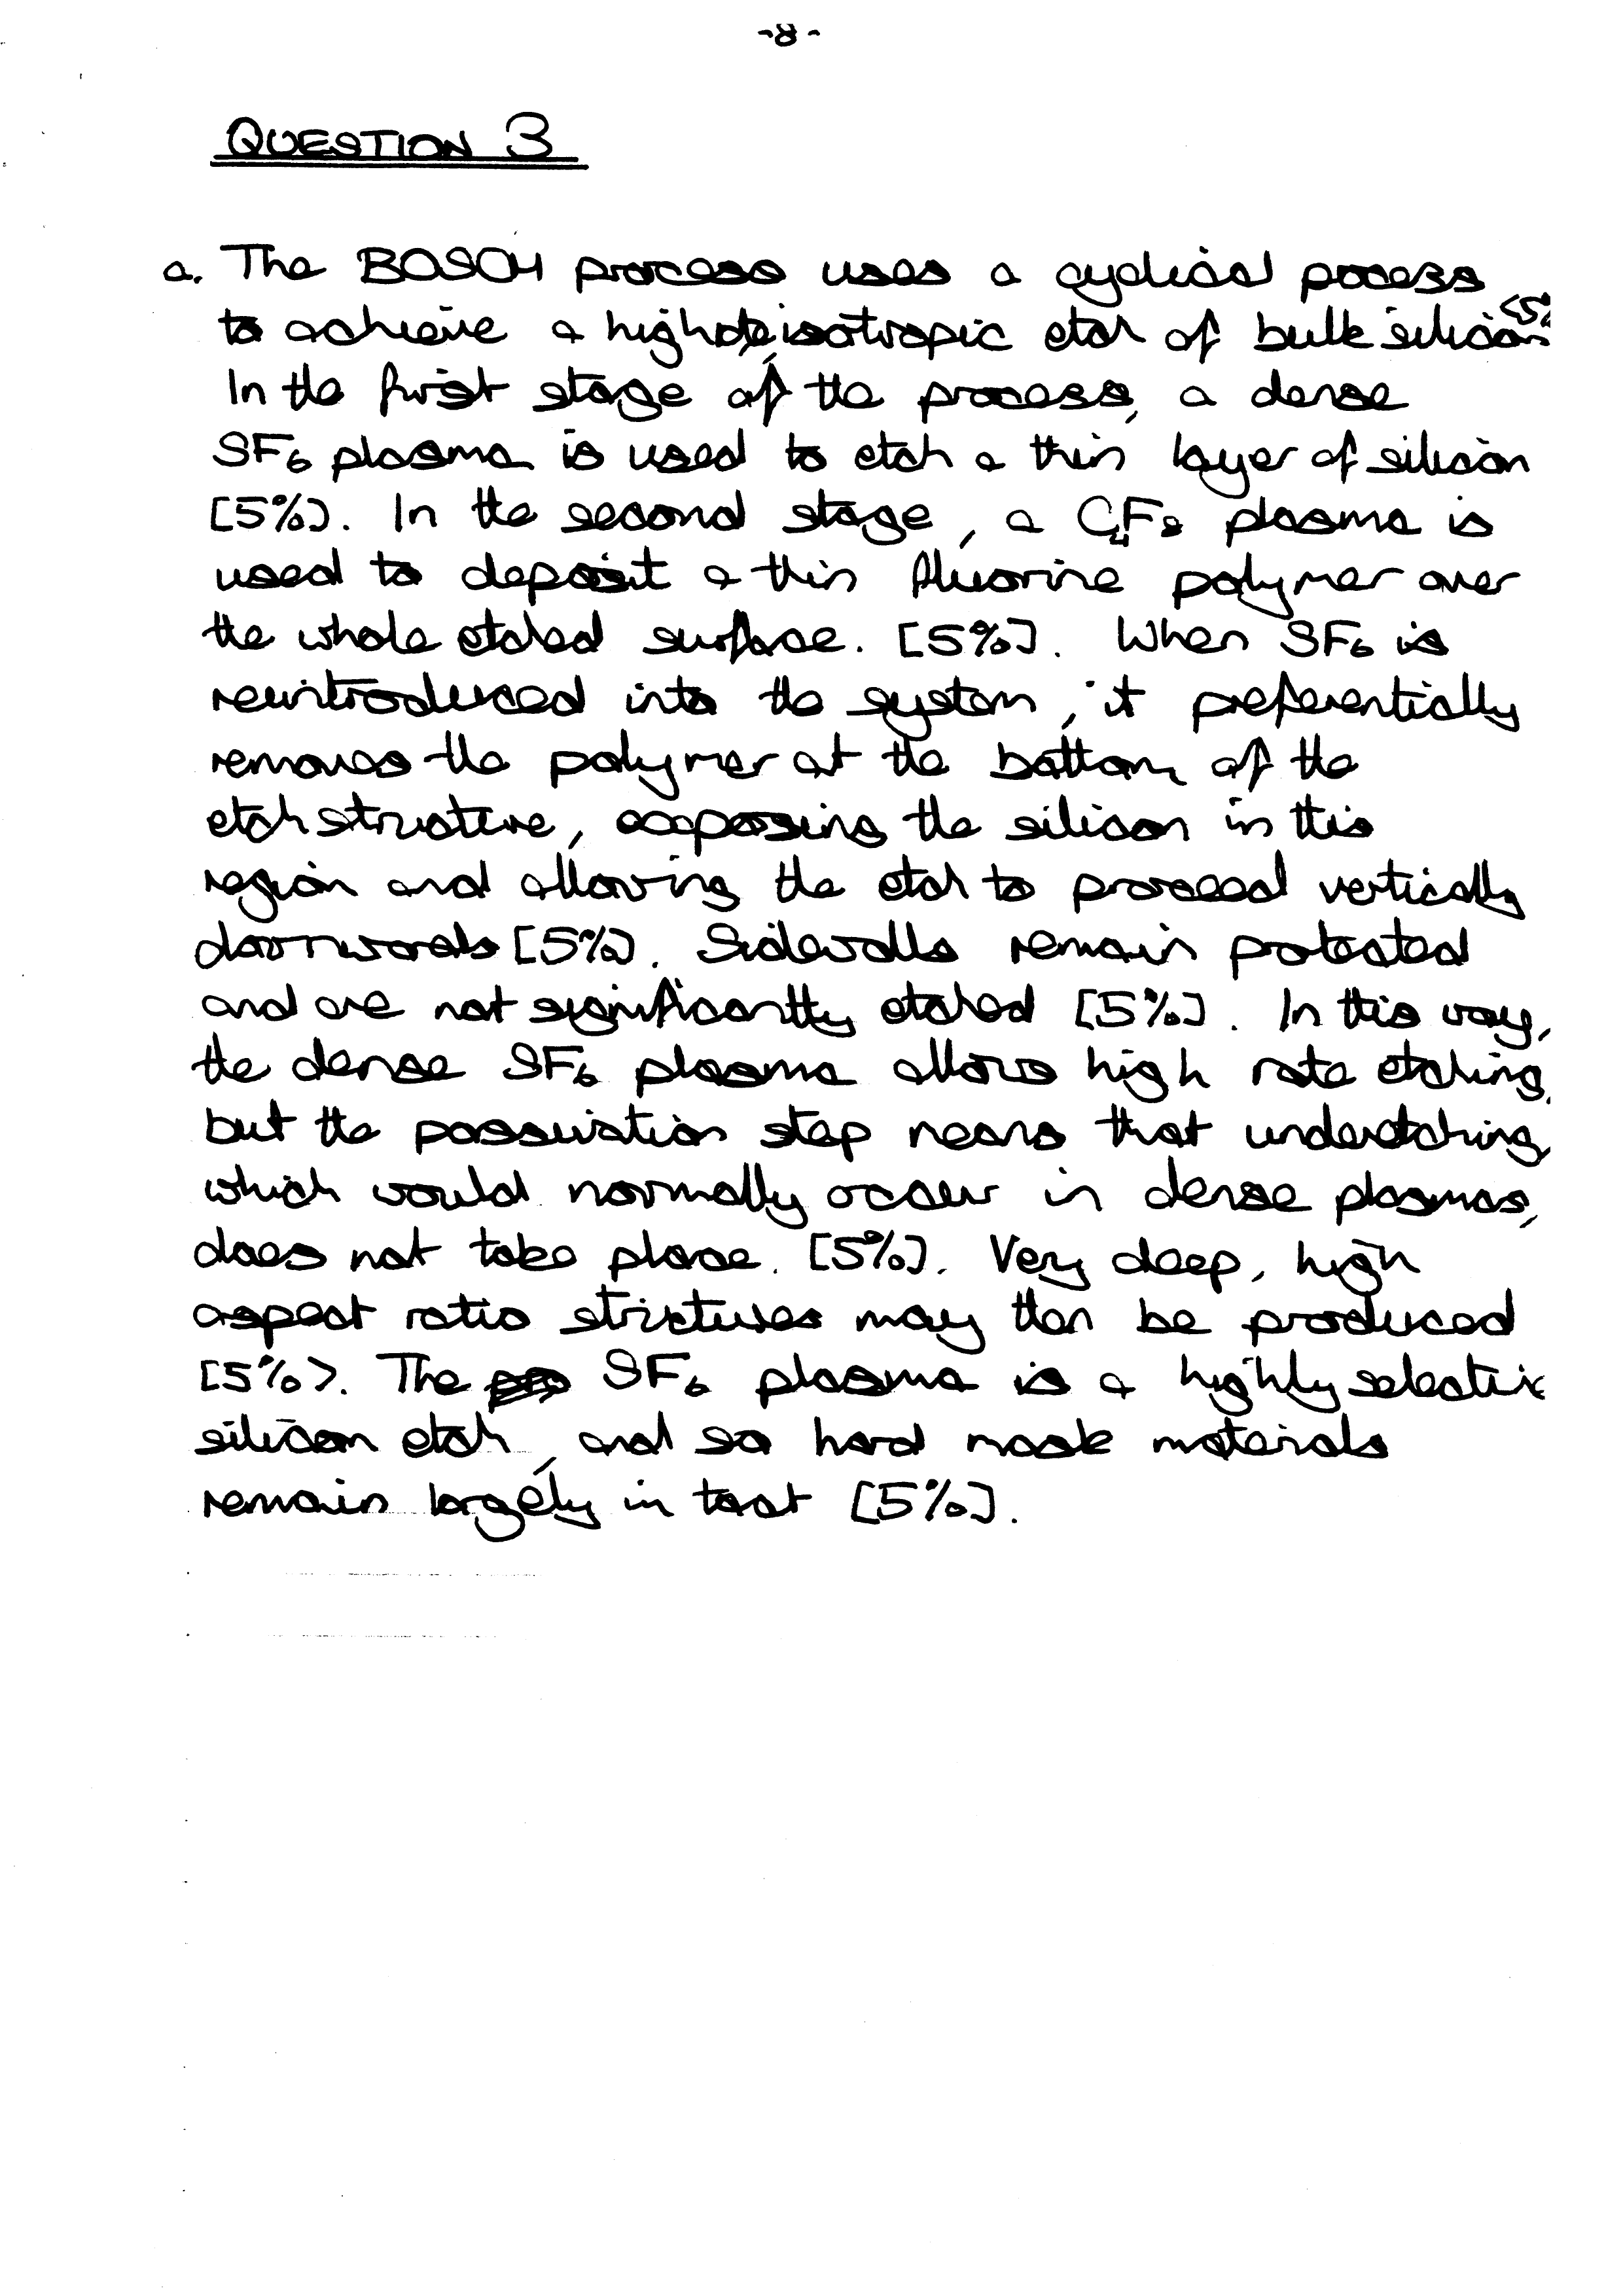 -8-
QUESTION 3
a. The BOSCH process uses a cyclical pocess
to achieve a high isotropic etch of bulk silicon
In the first stage of the process, a dense
SF6 plasma is used to etch a thin layer of silicon
[5%]. In the second stage, a C4F8 plasma is
used to deposit a thin fluorine polymer over
the whole etched surface. [5%]. When SF6 is
reintroduced into the system, it preferentially
removes the polymer at the bottom of the
etch structure, exposing the silicon in this
region and allowing the etch to proceed vertically
downwards [5%]. Sidewalls remain protected
and are not significantly etched [5%]. In this way,
the dense SF6 plasma allows high rate etching,
but the passivation step means that underetching,
which would normally occur in dense plasmas,
does not take place. [5%]. Very deep, high
aspect ratio structures may then be produced
[5%]. The SF6 plasma is a highly selective
silicon etch, and so hard mask materials
remain largely in tact [5%].